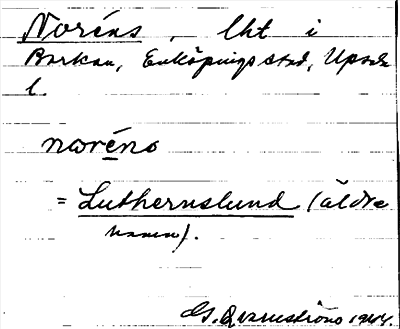 Noréns, lht i
Barkan, Enköpings stad, Upsala
l.
noréns
= Luthernslund (äldre
namn).
G. Qvarnström 1944.